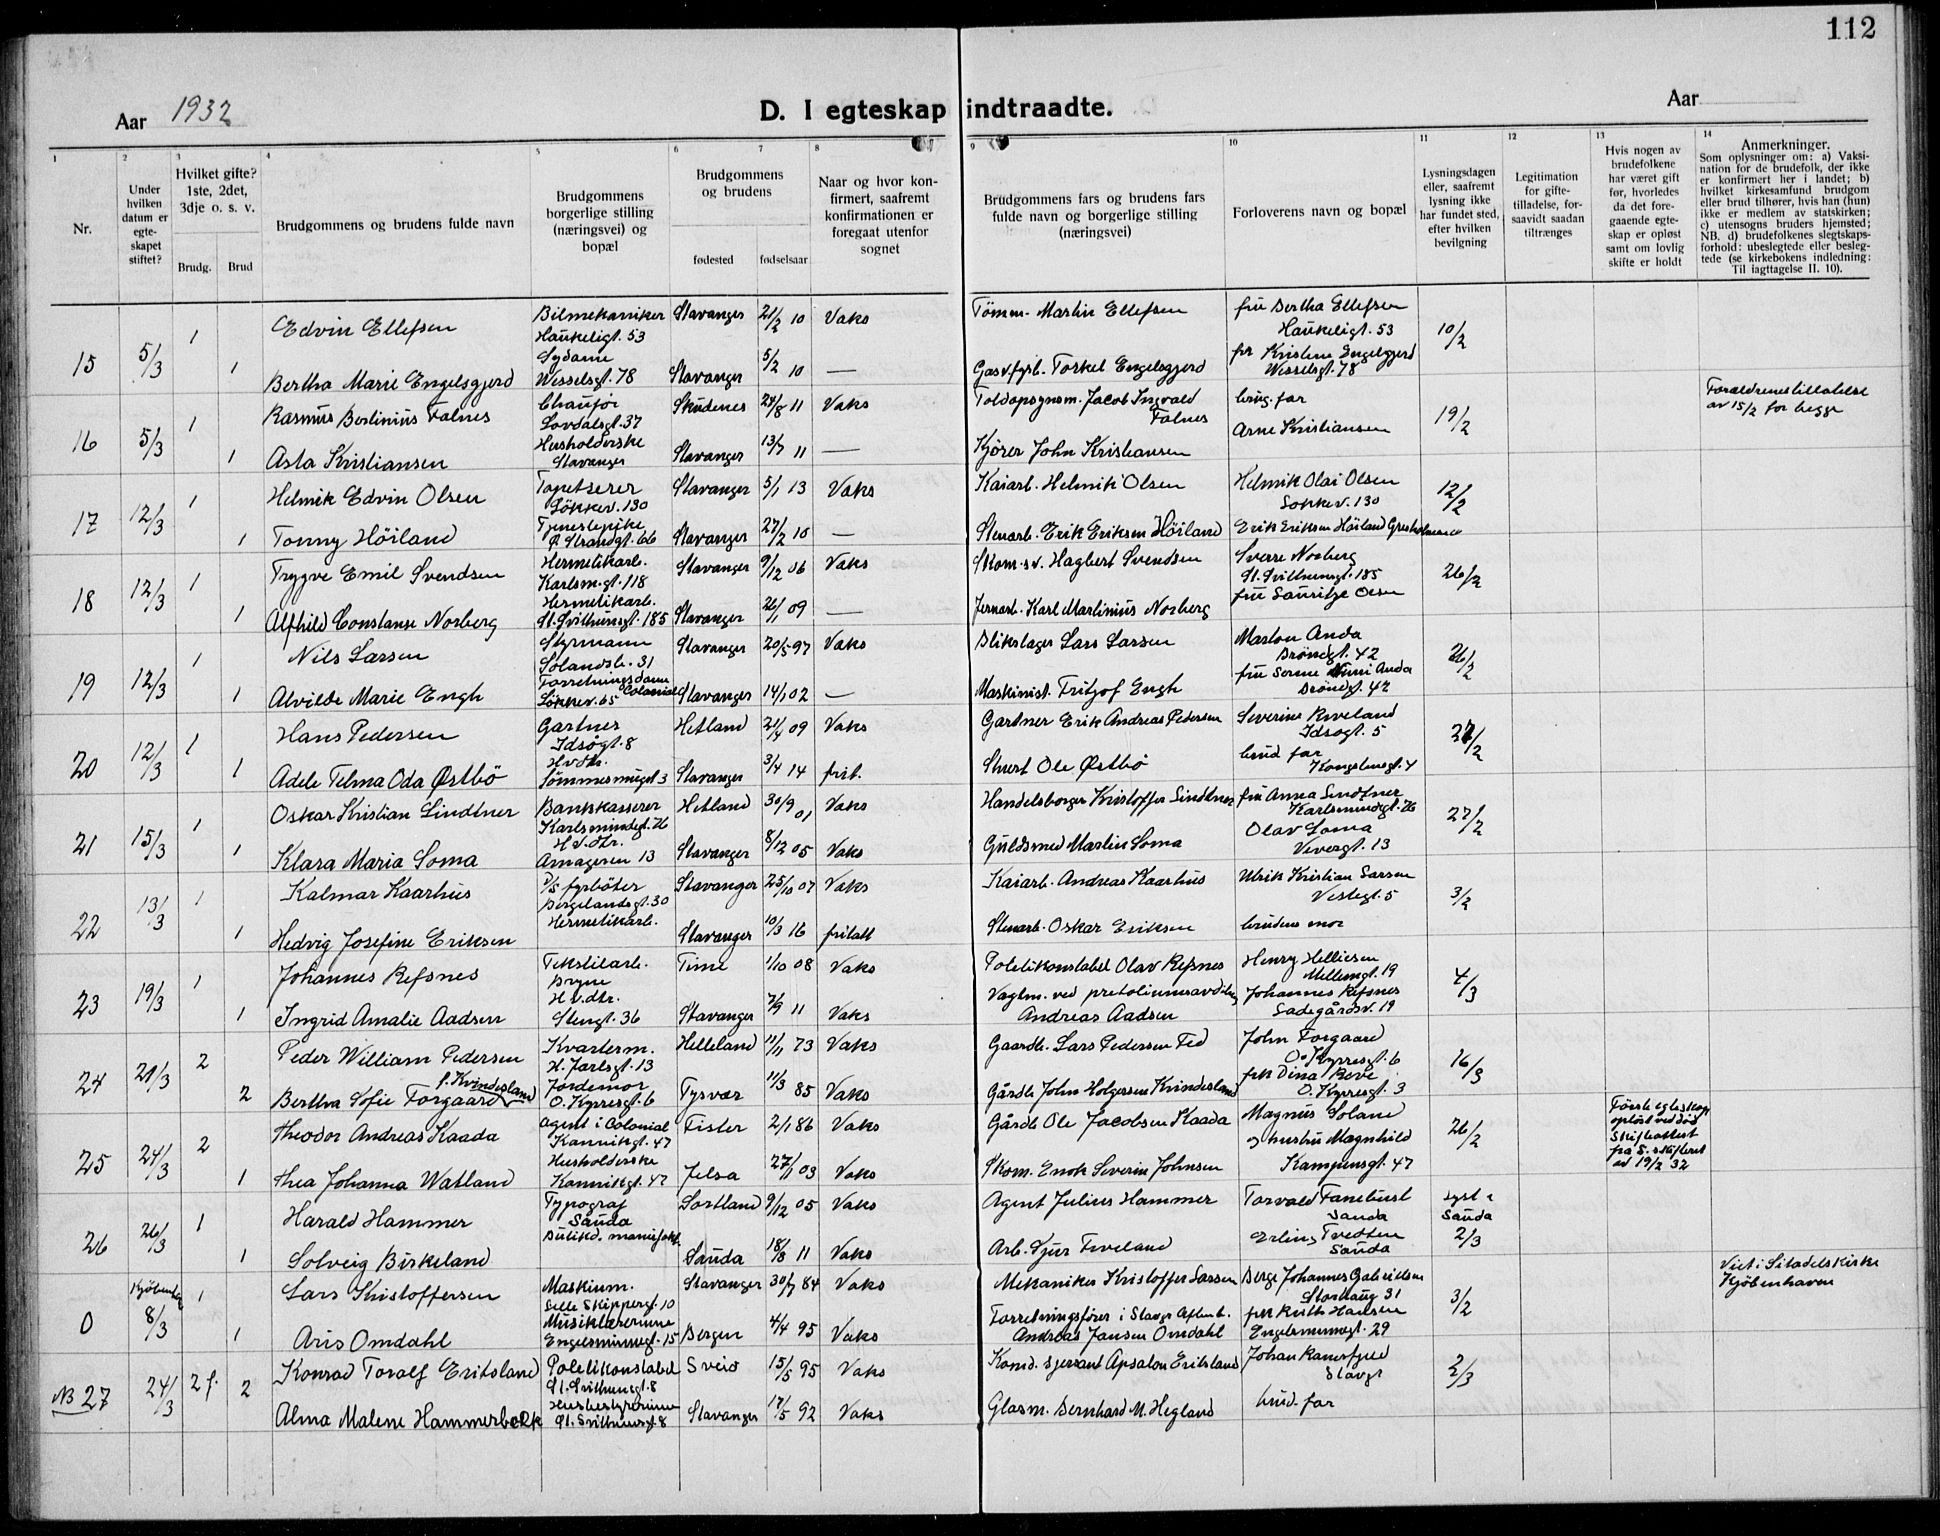 112
Aar 1932
D. I egteskap indtraadte.
Aar
1 2 3 4 5 6 7 8 9 10 11 12 13 14
Nr.
Under hvilken datum er egteskapet stiftet?
Hvilket gifte? 1ste, 2det, 3dje o. s. v.
Brudg. Brud
Brudgommens og brudens fulde navn
Brudgommens borgerlige stilling (næringsvei) og bopæl
Brudgommens og brudens
fødested fødselsaar
Naar og hvor konfirmert, saafremt konfirmationen er foregaat utenfor sognet
Brudgommens fars og brudens fars fulde navn og borgerlige stilling (næringsvei)
Forloverens navn og bopæl
Lysningsdagen eller, saafremt lysning ikke har fundet sted, efter hvilken bevilgning
Legitimation for giftetilladelse, forsaavidt saadan tiltrænges
Hvis nogen av brudefolkene har været gift før, hvorledes da det foregaaende egteskap er opløst samt om lovlig skifte er holdt
Anmerkninger.
Som oplysninger om: a) Vaksination for de brudefolk, der ikke er konfirmert her i landet; b) hvilket kirkesamfund brudgom eller brud tilhører, hvis han (hun) ikke er medlem av statskirken; c) utensogns bruders hjemsted; NB. d) brudefolkenes slegtskapsforhold: ubeslegtede eller beslegtede (se kirkebokens indledning: Til iagttagelse II. 10).
15 5/3 1 Edvin Ellefsen Bilmekaniker Haukeligt. 53 Stavanger 21/2 10 Vaks Tømm. Martin Ellefsen fru Bertha Ellefsen Haukeligt. 53 10/2
1 Bertha Marie Engelsgjerd Sydame Wesselsgt. 78 Stavanger 5/2 10 — Gasv.fyrb. Torkel Engelsgjerd frk Kristine Engelsgjerd Wesselsgt. 78
16 5/3 1 Rasmus Berlinius Falnes Chaufør Lovdalsgt. 37 Skudenes 24/8 11 Vaks Toldopsynsm. Jacob Ingvald Falnes brug. far 19/2 Foreldrenes tillatelse av 15/2 for begge
1 Asta Kristiansen Husholderske Stavanger Stavanger 13/7 11 — Kjører John Kristiansen Arne Kristiansen
17 12/3 1 Helmik Edvin Olsen Tapetserer Løkkev. 130 Stavanger 5/1 13 Vaks Kaiarb. Helmik Olsen Helmik Olai Olsen Løkkev. 130 12/2
1 Tonny Høiland Tjenestepike Ø. Strandgt. 66 Stavanger 27/2 10 — Stenarb. Erik Eriksen Høiland Erik Eriksen Høiland
18 12/3 1 Trygve Emil Svendsen Hermetikarb. Karlsm.gt. 118 Stavanger 9/12 06 Vaks Skom.sv. Hagbert Svendsen Sverre Norberg St. Svithunsgt. 185 26/2
1 Alfhild Constanse Norberg Hermetikarb. St. Svithunsgt. 185 Stavanger 26/1 09 — Jernarb. Karl Martinius Norberg fru Lauritze Olsen
19 12/3 1 Nils Larsen Styrmann Solandsb. 31 Stavanger 20/5 97 Vaks Blikslager Lars Larsen Marton Anda Brøndgt. 42 26/2
1 Alvilde Marie Engh Forretningsdame Colonial Løkkev. 65 Stavanger 14/1 02 — Maskinist. Fritjof Engh fru Anda Brøndgt. 42
20 12/3 1 Hans Pedersen Gartner Idsøgt. 8 Hetland 21/4 09 Vaks Gartner Erik Andreas Pedersen Severine Idsøgt. 5 27/2
1 Adele Telma Oda Østbø Hv.dtr. Tømmersmuget 3 Stavanger 3/4 14 frit. Stuert Ole Østbø brud far Kongstensgt. 4
21 15/3 1 Oskar Kristian Lindtner Bankkasserer Karlsmindegt. 76 Hetland 30/9 01 Vaks Handelsborger Kristoffer Lindtner fru Anna Lindtner Karlsmindegt. 76 27/2
1 Klara Maria Soma H.v.dtr. Amageren 13 Stavanger 8/12 05 Vaks Guldsmed Martin Soma Olav Soma Vevergt. 13
22 13/3 1 Kalmar Kaarhus D/S fyrbøter Bergelandsgt. 30 Stavanger 25/10 07 Vaks Kaiarb. Andreas Kaarhus Ulrik Kristian Larsen Vestegt. 5 3/2
1 Hedvig Josefine Eriksen Hermetikarb. Stavanger 10/3 16 fritatt Stenarb. Oskar Eriksen brudens mor
23 19/3 1 Johannes Refsnes Tekstilarb. Bryne Time 1/10 08 Vaks Politikonstabel Olav Refsnes Henry Helliesen Møllengt. 19 4/3
1 Ingrid Amalie Aadsen H.v.dtr. Stengt. 36 Stavanger 7/9 11 Vaks Vagtm. ved Andreas Aadsen Johannes Refsnes Ladegårdsv. 19
24 21/3 2 Peder William Pedersen Kvarterm. H. Jarlsgt. 13 Helleland 11/11 73 Vaks Gaardb. Lars Pedersen Fed John Torgaard O. Kyrresgt. 6 16/3
2 Bertha Sofie Torgaard f. Kvindesland Jordemor O. Kyrresgt. 6 Tysvær 11/3 85 Vaks Gårdb John Holgersen Kvindesland frk Dina Reve O. Kyrresgt. 3
25 24/3 2 Theodor Andreas Kaada agent i Colonial Kannikgt. 47 Fister 2/1 86 Vaks Gårdb Ole Jacobsen Kaada Magnus Soland 26/2 Første egteskap opløst ved død Skifteattest fra S. skifteret av 19/2 32
1 Thea Johanna Watland Husholderske Kannikgt. 47 Jelsa 27/11 03 Vaks Skom. Enok Severin Johnsen og hustru Magnhild Kampensgt. 47
26 26/3 1 Harald Hammer Typograf Sauda Sortland 9/12 05 Vaks Agent Julius Hammer Torvald Sauda lyst i Sauda 2/3
1 Solveig Birkeland Butikd. manufakt. Sauda 18/8 11 Vaks Arb. Sjur Tveland Erling Tvedten Sauda
0 Kjøbenhavn 8/3 1 Lars Kristoffersen Maskinm. Lille Skippergt. 10 Stavanger 30/7 84 Vaks Mekaniker Kristoffer Larsen Berge Johannes Gabrielsen Storhaug 31 3/2 Viet i Citadelskirke Kjøbenhavn
1 Aris Omdahl Musiklærerinne Engelsminnegt. 15 Bergen 4/4 95 Vaks Forretningsfører i Stavgr Aftenb. Andreas Jansen Omdahl frk Ruth Hansen Engelsminnegt. 29
NB 27 24/3 2 f. Konrad Toralf Eritsland Politikonstabel St. Svithunsgt. 8 Sveio 15/5 95 Vaks Komd. sjersant Apsalon Eritsland Johan Ranesfjeld Stavgr 2/3
2 Alma Malene Hammerbeck Husbestyrerinne St. Svithunsgt. 8 Stavanger 17/5 92 Vaks Glasm. Bernhard M. Hegland brud. far